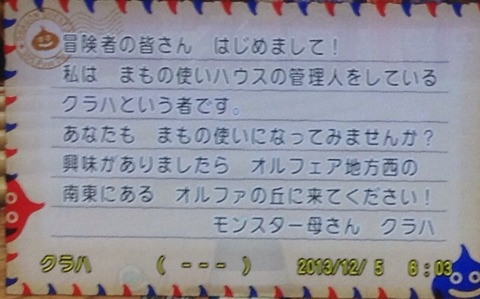 冒険者の皆さん　はじめまして！
私は　まもの使いハウスの管理人をしている
クラハという者です。
あなたも　まもの使いになってみませんか？
興味がありましたら　オルフェア地方西の
南東にある　オルファの丘に来てください！
モンスター母さん　クラハ
クラハ　（ － － － ）　2013/12/ 5　6：03